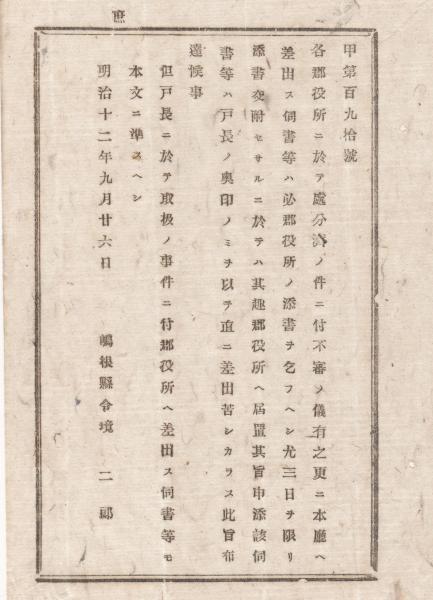 庶
甲第百九拾號
各郡役所ニ於テ處分濟ノ件ニ付不審ノ儀有之更ニ本廳ヘ
差出ス伺書等ハ必郡役所ノ添書ヲ乞フヘシ尤三日ヲ限リ
添書交附セサルニ於テハ其趣郡役所ヘ届置其旨申添該伺
書等ハ戸長ノ奥印ノミヲ以テ直ニ差出苦シカラス此旨布
達候事
但戸長ニ於テ取扱ノ事件ニ付郡役所ヘ差出ス伺書等モ
本文ニ準スヘシ
明治十二年九月廿六日　嶋根縣令境　二郎